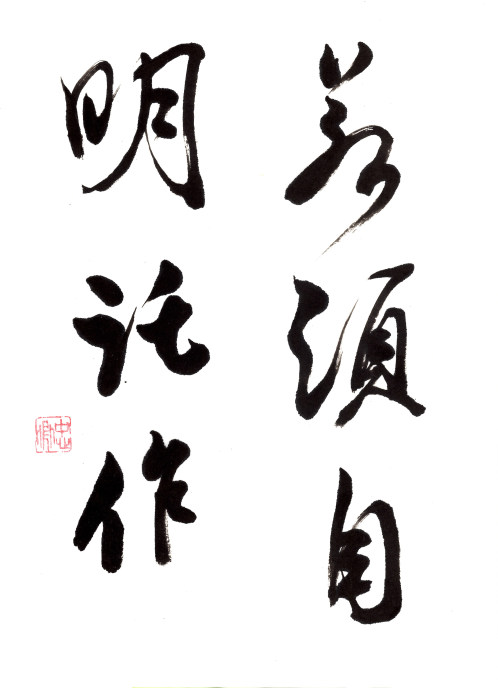 若須自
明託作